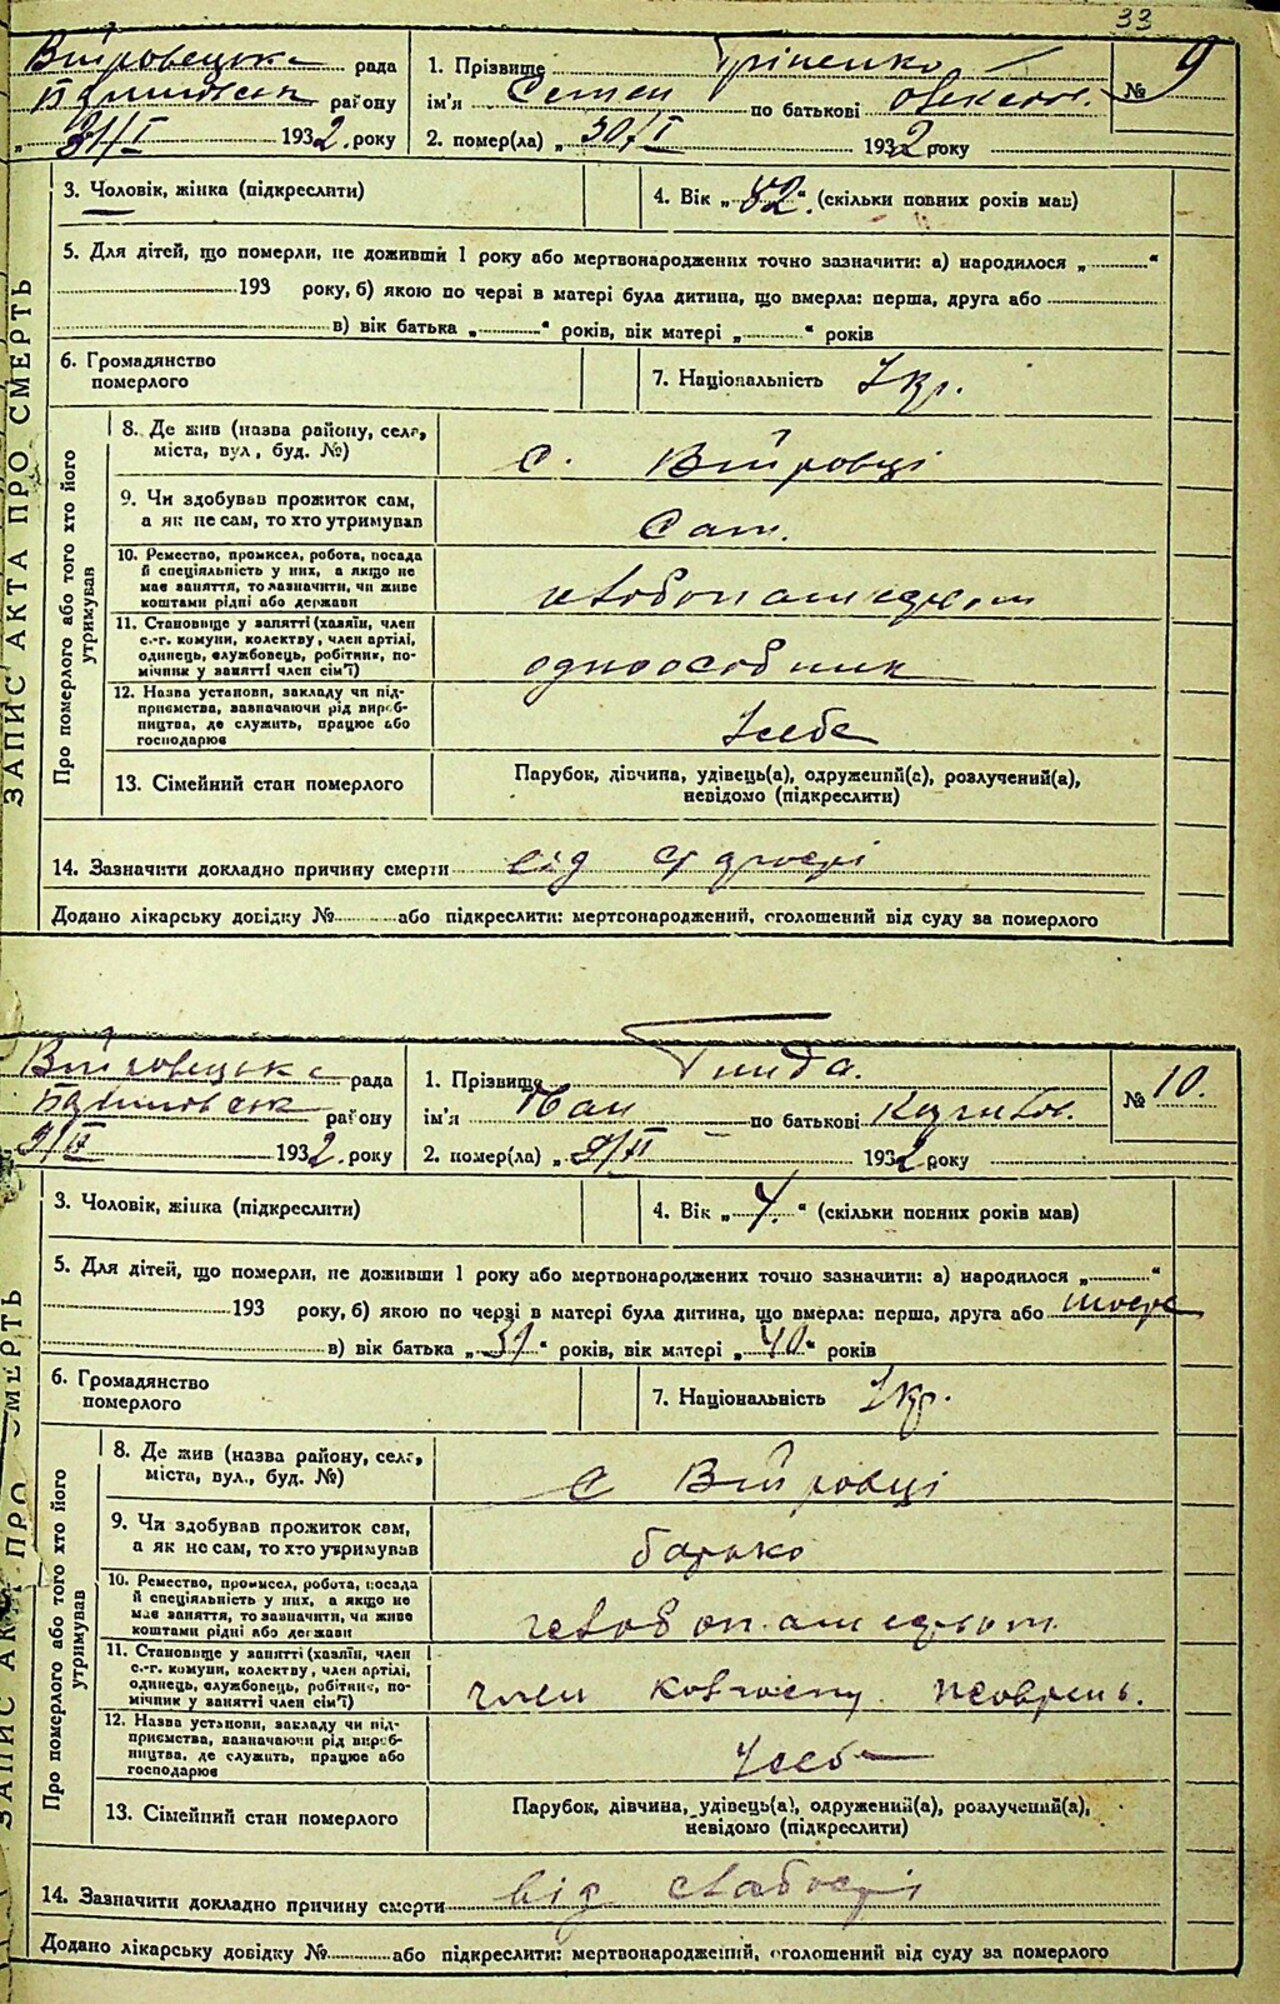 33
Війтовецька рада
району
„ 31/I 1932 року
1. Прізвище Гріненко
ім'я Семен по батькові Олексов.
2. помер(ла) „ 30/I 1932 року
№ 9
3. Чоловік, жінка (підкреслити)
4. Вік „ 82 “ (скільки повних років мав)
5. Для дітей, що померли, не доживши 1 року або мертвонароджених точно зазначити: а) народилося „ “
193 року, б) якою по черзі в матері була дитина, що вмерла: перша, друга або
в) вік батька „ “ років, вік матері „ “ років
6. Громадянство
померлого
7. Національність Укр.
ЗАПИС АКТА ПРО СМЕРТЬ
Про померлого або того хто його
утримував
8. Де жив (назва району, села,
міста, вул, буд. №)
с. Війтовці
9. Чи здобував прожиток сам,
а як не сам, то хто утримував
Сам.
10. Ремество, промисел, робота, посада
й спеціяльність у них, а якщо не
має заняття, то зазначити, чи живе
коштами рідні або держави
хлібопашеством
11. Становище у занятті (хазяїн, член
с.-г. комуни, колектву, член артілі,
одинець, службовець, робітник, по-
мічник у занятті член сім'ї)
одноособник
12. Назва установи, закладу чи під-
приємства, зазначаючи рід вироб-
ництва, де служить, працює або
господарює
У себе
13. Сімейний стан померлого
Парубок, дівчина, удівець(а), одружений(а), розлучений(а),
невідомо (підкреслити)
14. Зазначити докладно причину смерти від старості
Додано лікарську довідку № або підкреслити: мертвонароджений, оголошений від суду за померлого
Війтовецька рада
району
9/II 1932 року
1. Прізвище Гинда.
ім'я Іван по батькові
2. помер(ла) „ 9/II 1932 року
№ 10.
3. Чоловік, жінка (підкреслити)
4. Вік „ “ (скільки повних років мав)
5. Для дітей, що померли, не доживши 1 року або мертвонароджених точно зазначити: а) народилося „ “
193 року, б) якою по черзі в матері була дитина, що вмерла: перша, друга або
в) вік батька „ “ років, вік матері „ 40 “ років
6. Громадянство
померлого
7. Національність Укр.
ЗАПИС АКТА ПРО СМЕРТЬ
Про померлого або того хто його
утримував
8. Де жив (назва району, села,
міста, вул., буд. №)
с Війтовці
9. Чи здобував прожиток сам,
а як не сам, то хто утримував
батько
10. Ремество, промисел, робота, посада
й спеціяльність у них, а якщо не
має заняття, то зазначити, чи живе
коштами рідні або держави
хлібопашеством
11. Становище у занятті (хазяїн, член
с.-г. комуни, колектву, член артілі,
одинець, службовець, робітник, по-
мічник у занятті член сім'ї)
член колгоспу
12. Назва установи, закладу чи під-
приємства, зазначаючи рід вироб-
ництва, де служить, працює або
господарює
У себе
13. Сімейний стан померлого
Парубок, дівчина, удівець(а), одружений(а), розлучений(а),
невідомо (підкреслити)
14. Зазначити докладно причину смерти від слабості
Додано лікарську довідку № або підкреслити: мертвонароджений, оголошений від суду за померлого